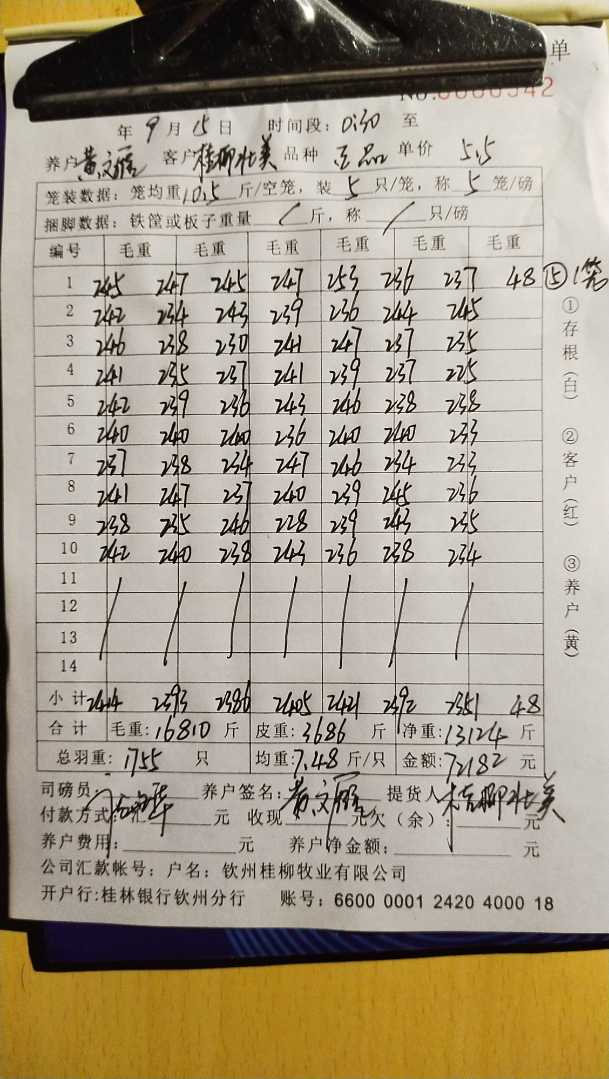 单
No.0000342
年9月15日 时间段:0:30 至
养户黄文 客户桂柳壮美 品种 正品 单价 5.5
笼装数据:笼均重10.5斤/空笼,装5只/笼,称5笼/磅
捆脚数据:铁筐或板子重量/斤,称/只/磅
编号 毛重 毛重 毛重 毛重 毛重 毛重
1 245 247 245 247 253 236 237 48 ⑤1笼
2 242 234 243 239 236 244 245
3 246 238 230 241 247 237 235
4 241 235 237 241 239 237 225
5 242 239 236 243 246 238 238
6 240 240 240 236 240 240 233
7 237 238 234 247 246 234 233
8 241 247 237 240 239 245 236
9 238 235 246 228 239 243 235
10 242 240 238 243 236 238 234
11
12
13
14
小计 2414 2393 2386 2405 2421 2392 2351 48
合计 毛重:16810斤 皮重:3686斤 净重:13124斤
总羽重:1755只 均重:7.48斤/只 金额:72182元
司磅员: 养户签名:黄文 提货人桂柳壮美
付款方式: 元 收现 元欠(余): 元
养户费用: 元 养户净金额: 元
公司汇款帐号:户名:钦州桂柳牧业有限公司
开户行:桂林银行钦州分行 账号:6600 0001 2420 4000 18
①存根(白)
②客户(红)
③养户(黄)